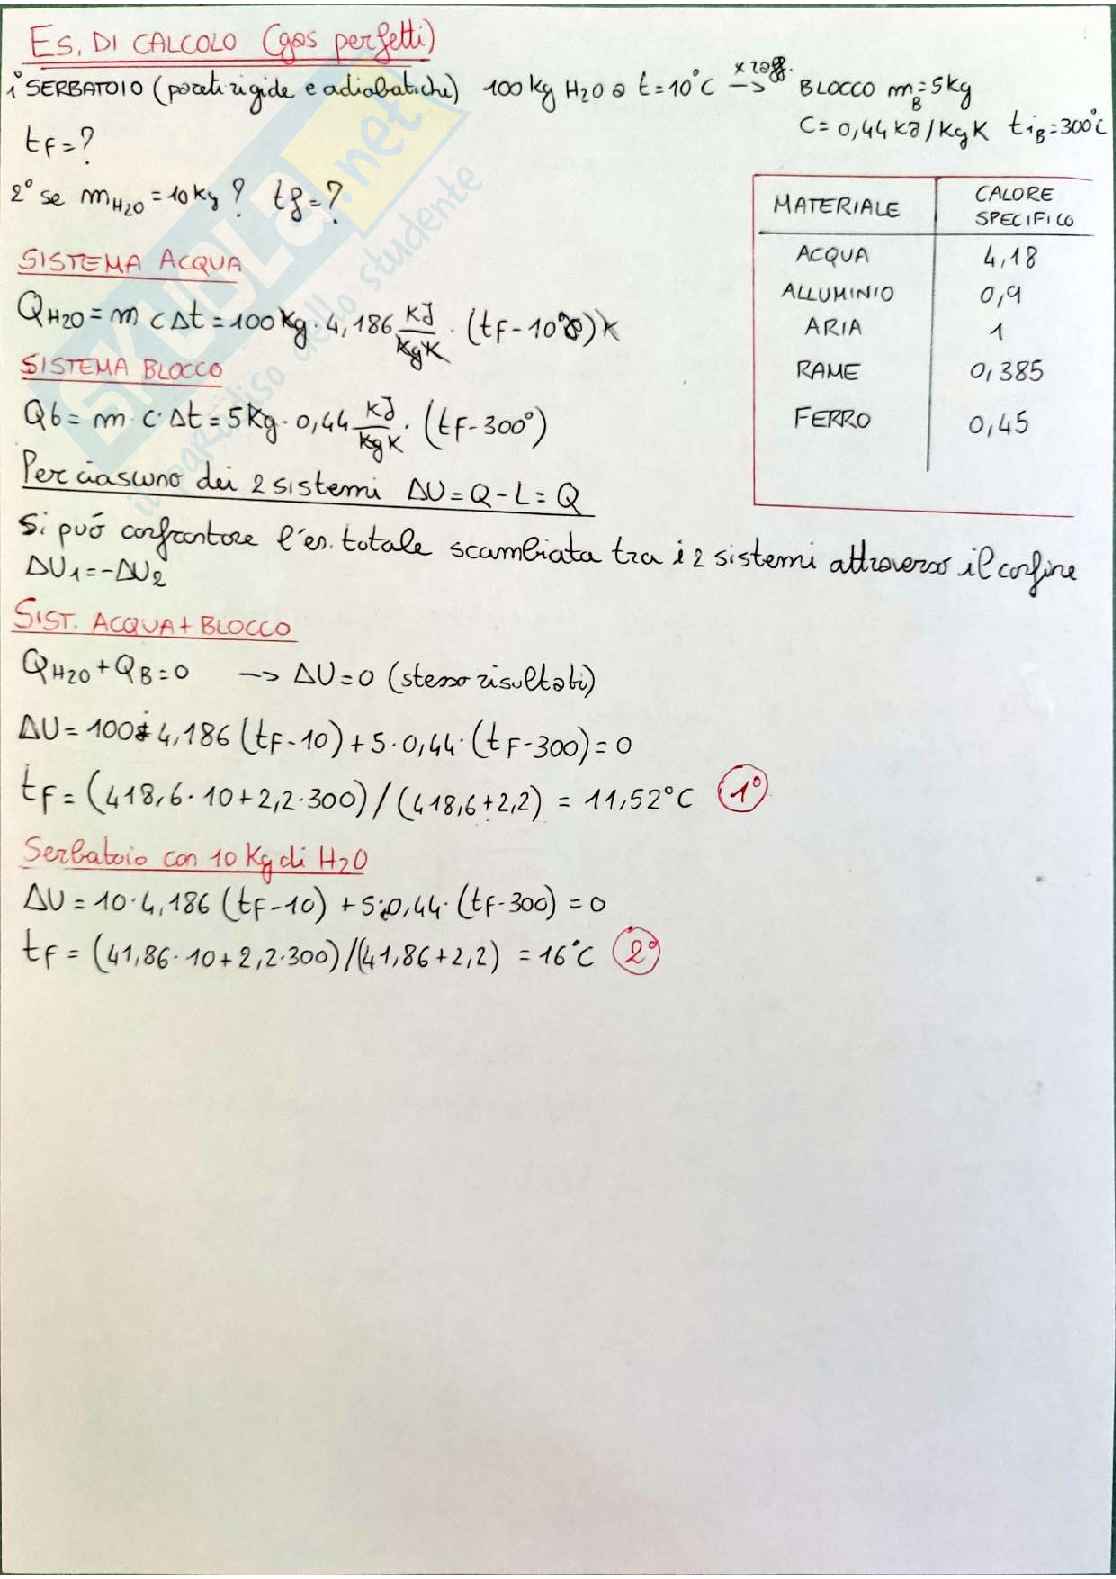 ES. DI CALCOLO (gas perfetti)
1° SERBATOIO (pareti rigide e adiabatiche) 100 kg H2O a t=10°C x raff. -> BLOCCO mB=5kg
C=0,44 kJ/kgK tiB=300°C
tF=?
2° se mH2O=10kg? tf=?
MATERIALE CALORE SPECIFICO
ACQUA 4,18
ALLUMINIO 0,9
ARIA 1
RAME 0,385
FERRO 0,45
SISTEMA ACQUA
QH2O = m c Δt = 100 kg · 4,186 kJ/kgK · (tF-10°)K
SISTEMA BLOCCO
Qb = m · c · Δt = 5kg · 0,44 kJ/kgK · (tF-300°)
Per ciascuno dei 2 sistemi ΔU=Q-L=Q
Si può confrontare l'en. totale scambiata tra i 2 sistemi attraverso il confine
ΔU1=-ΔU2
SIST. ACQUA+BLOCCO
QH2O+QB=0 -> ΔU=0 (stesso risultati)
ΔU=100·4,186(tF-10)+5·0,44·(tF-300)=0
tF=(418,6·10+2,2·300)/(418,6+2,2)=11,52°C 1°
Serbatoio con 10 Kg di H2O
ΔU=10·4,186(tF-10)+5·0,44·(tF-300)=0
tF=(41,86·10+2,2·300)/(41,86+2,2)=16°C 2°
SKUOLA.net
il paradiso dello studente